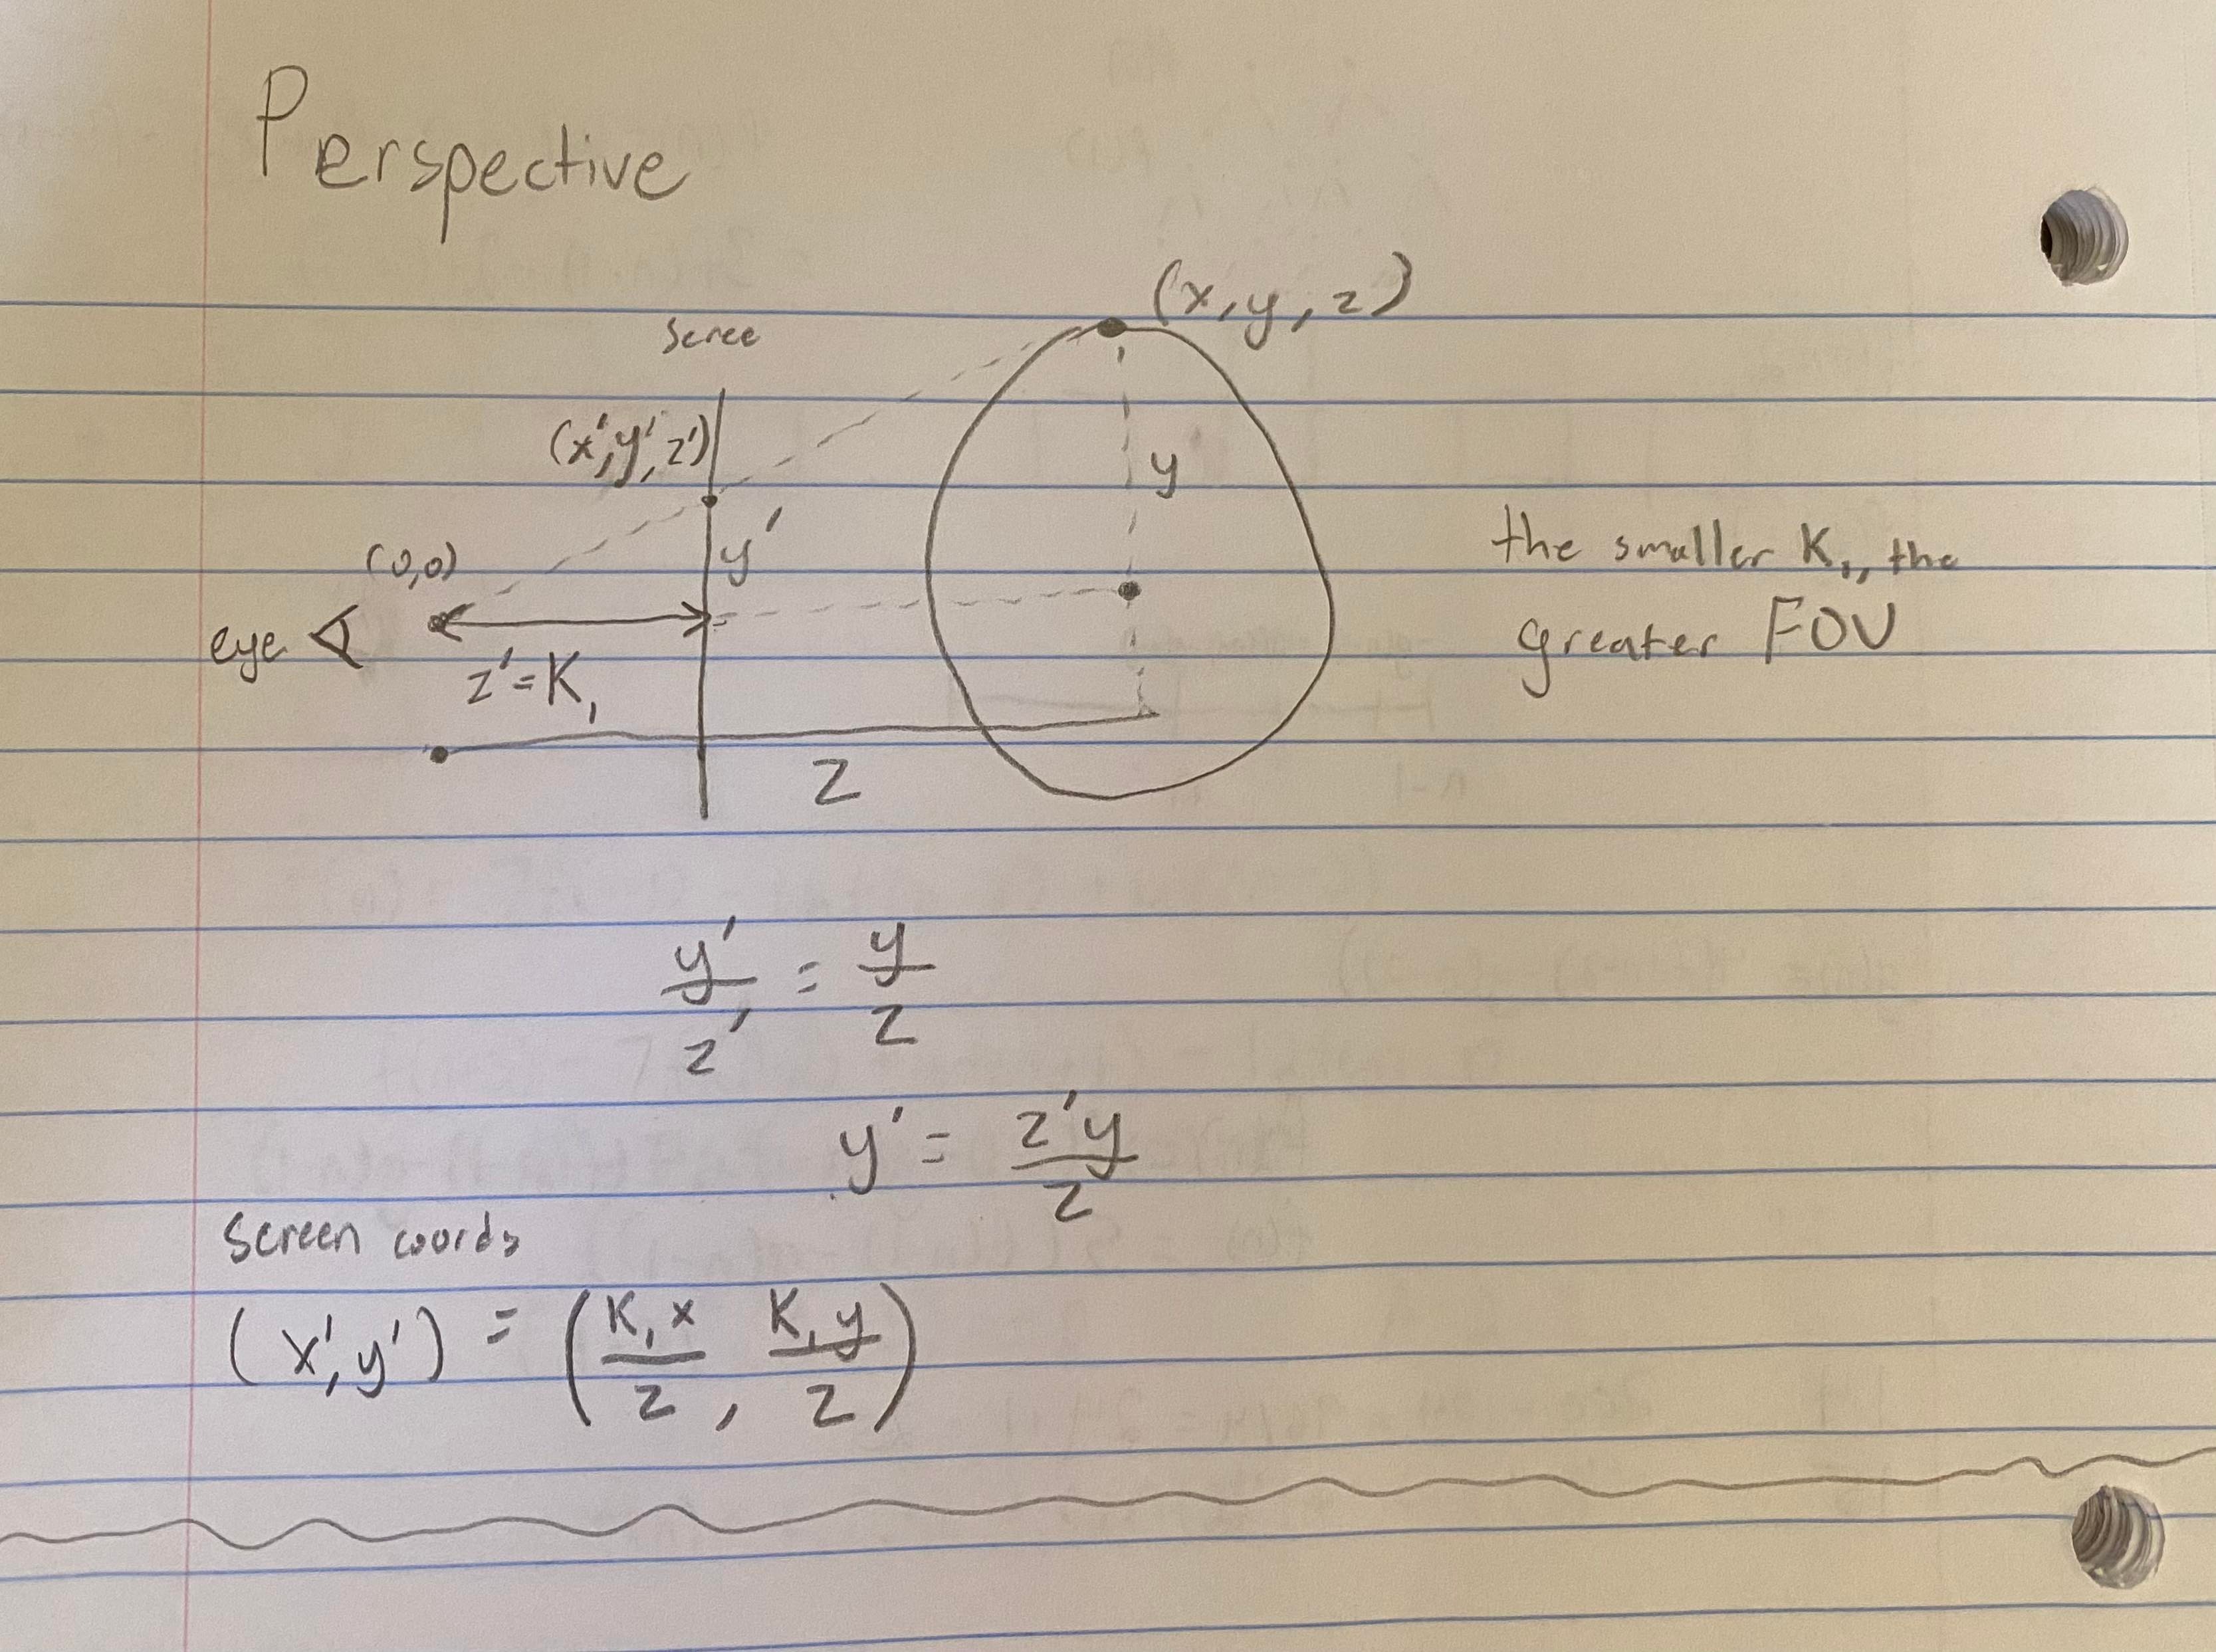 Perspective
(x, y, z)
Scree
(x', y', z')
y
y'
the smaller K₁, the
(0,0)
greater FOV
eye
z' = K₁
z
y'/z' = y/z
y' = z'y/z
Screen coords
(x', y') = (K₁x/z, K₁y/z)